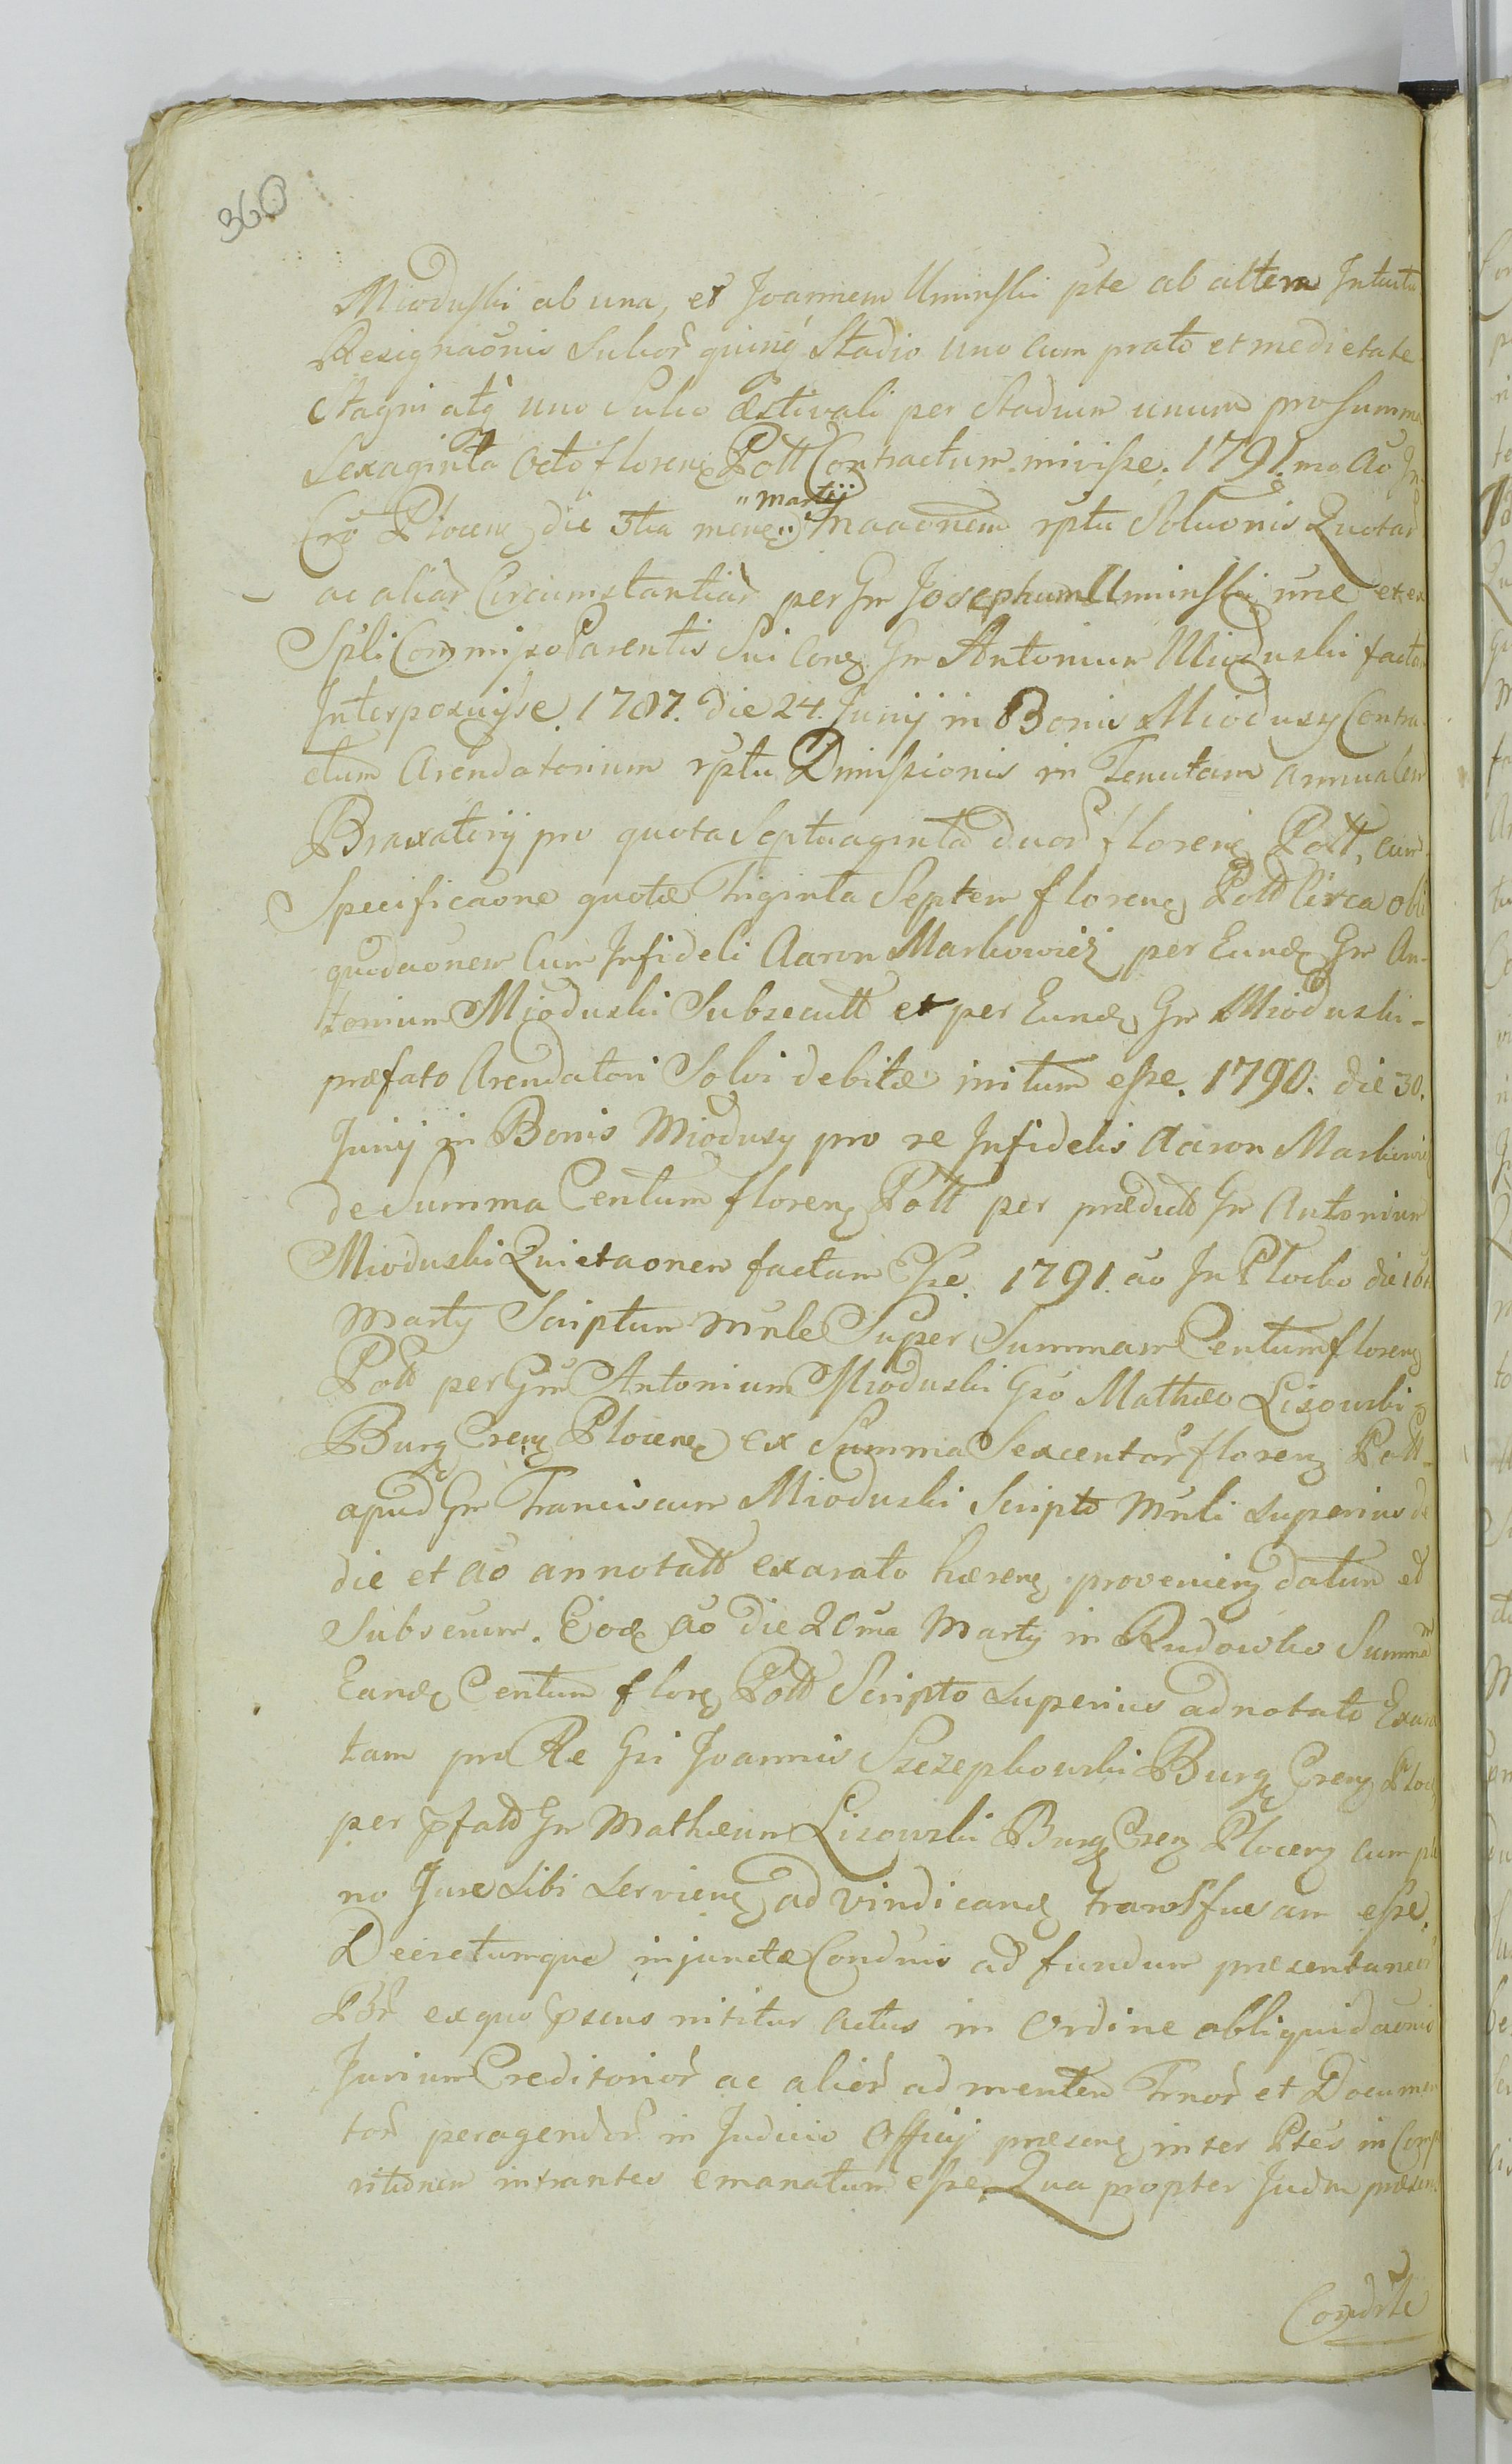 360
Mioduski ab una, et Joannem Uminski pte ab altera Intuitu
Resignaōnis Sulcoȓ quinq̀ Stadio uno cum prato et medietate
Stagni atq̀ uno Sulco Æstivali per Stadium unum pro Summa
Sexaginta Octo florenꝫ Poll Contractum inivisse. 1791.mo Aō In
Crō Plocenꝫ die 3tia mensꝫ „Martij„ ōnem rptu Soluōnis Quotaȓ
ac aliaȓ Circumstantiaȓ per Gm Josephum Uminski nne et ex
Spli Commisso Parentis Sui Conꝫ Gm Antonium Mioduski factam
Interposuisse. 1787. die 24. Junij in Bonis Miodusy Contra-
ctum Arendatorium rptu Dimissionis in Tenutam annualem
Braxatorij pro quota Septuaginta duoȓ florenꝫ Poll, cum
Specificaōne quotæ Triginta Septem florenꝫ Poll Circa obli
quidaōnem Cum Infideli Aaron Markowicz per Eundꝫ Gm An-
tonium Mioduski Subsecutt et per Eundꝫ Gm Mioduski-
præfato Arendatori Solvi debitæ initum esse. 1790. die 30.
Junij in Bonis Miodusy pro re Infidelis Aaron Markowicz
de Summa Centum florenꝫ Poll per prædictt Gm Antonium
Mioduski Quietaōnem factam Esse. 1791. aō In Plocko die 16
Martij Scriptum Mnle Super Summam Centum florenꝫ
Poll per Gm Antonium Mioduski Gsō Mathæo Lisowski-
Burgꝫ Crenꝫ Plocenꝫ ex Summa Sexcentoȓ florenꝫ Poll-
apud Gm Franciscum Mioduski Scripto Mnli superius de
die et aō annotatt exarato hærenꝫ provenienꝫ datum et
Subsecum. Eodꝫ aō die 20ma Martij in Rudowko Summam
Eandꝫ Centum florꝫ Poll Scripto superius adnotato Exara
tam pro Re Gsi Joannis Szczepkowski Burgꝫ Crenꝫ Plocꝫ
per pfatt Gm Mathæum Lisowski Burgꝫ Crenꝫ Plocenꝫ cum ple
no Jure Sibi Servienꝫ ad vindicandꝫ transfusam esse.
Decretumque injunctæ Condnis ad fundum præsentaneoȓ
Bōȓ ex quo psens nititur Actus in Ordine obliquidaōnis
Jurium Creditorioȓ ac alioȓ ad mentem Trnoȓ et Documen
toȓ peragendoȓ in Judicio Officij præsenꝫ inter Ptes in Comp
ritionem intrantes emanatum esse. Qua propter Judm præsens
Condrle